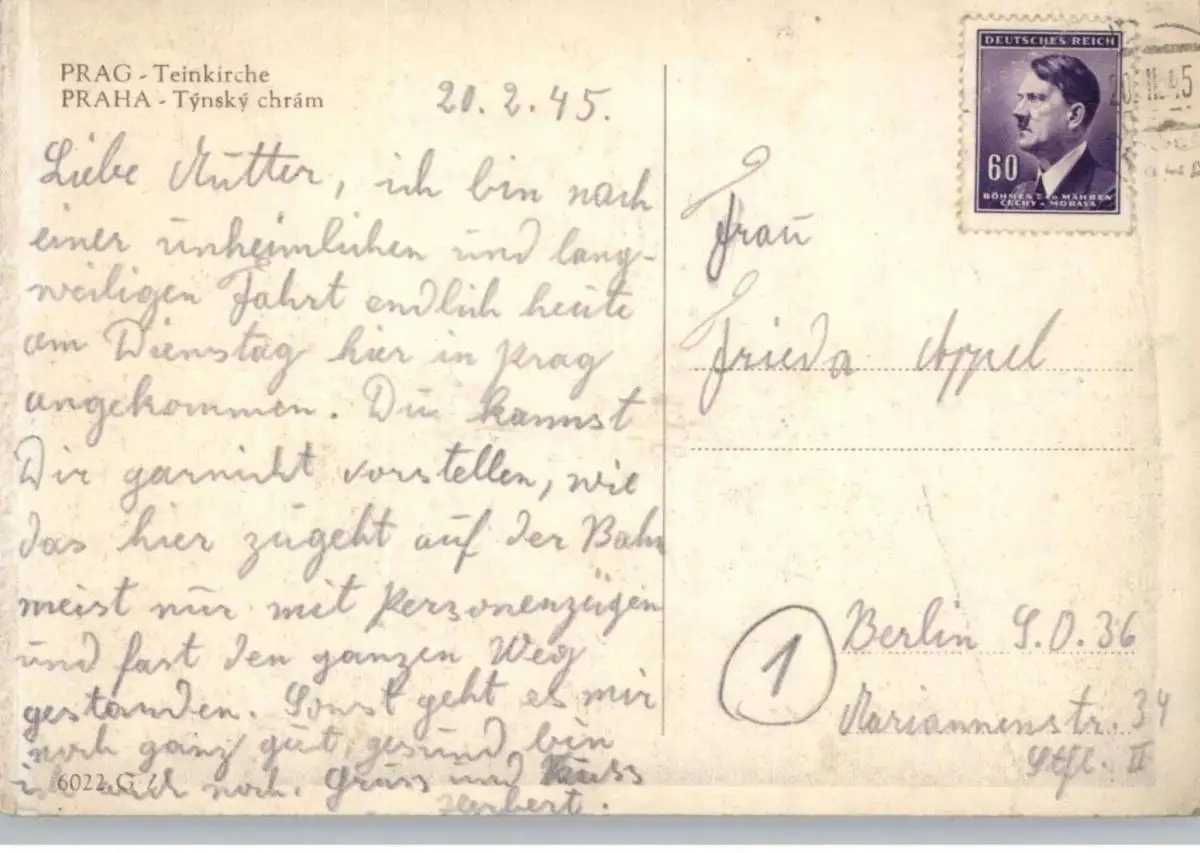 PRAG - Teinkirche
PRAHA - Týnský chrám
20. 2. 45.
Liebe Mutter, ich bin nach
einer unheimlichen und lang-
weiligen Fahrt endlich heute
am Dienstag hier in Prag
angekommen. Du kannst
Dir garnicht vorstellen, wie
das hier zugeht auf der Bahn
meist nur mit Personenzügen
und fast den ganzen Weg
gestanden. Sonst geht es mir
noch ganz gut, gesund bin
ich auch noch. Gruss und Kuss
Herbert.
6022 G
DEUTSCHES REICH
60
BÖHMEN u. MÄHREN
ČECHY a MORAVA
20. II. 45
Frau
Frieda Appel
1
Berlin S.O. 36
Mariannenstr. 34
Stfl. II